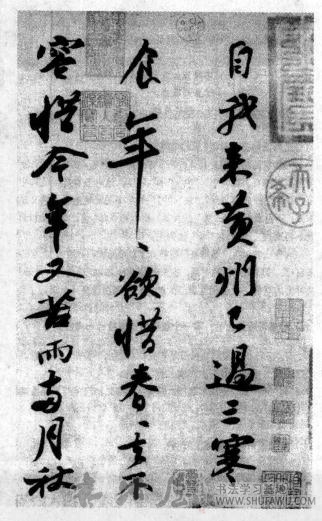 自我来黄州已過三寒
食年〻欲惜春〻去不
容惜今年又苦雨兩月秋
书法学习基地
WWW.SHUFAWU.COM